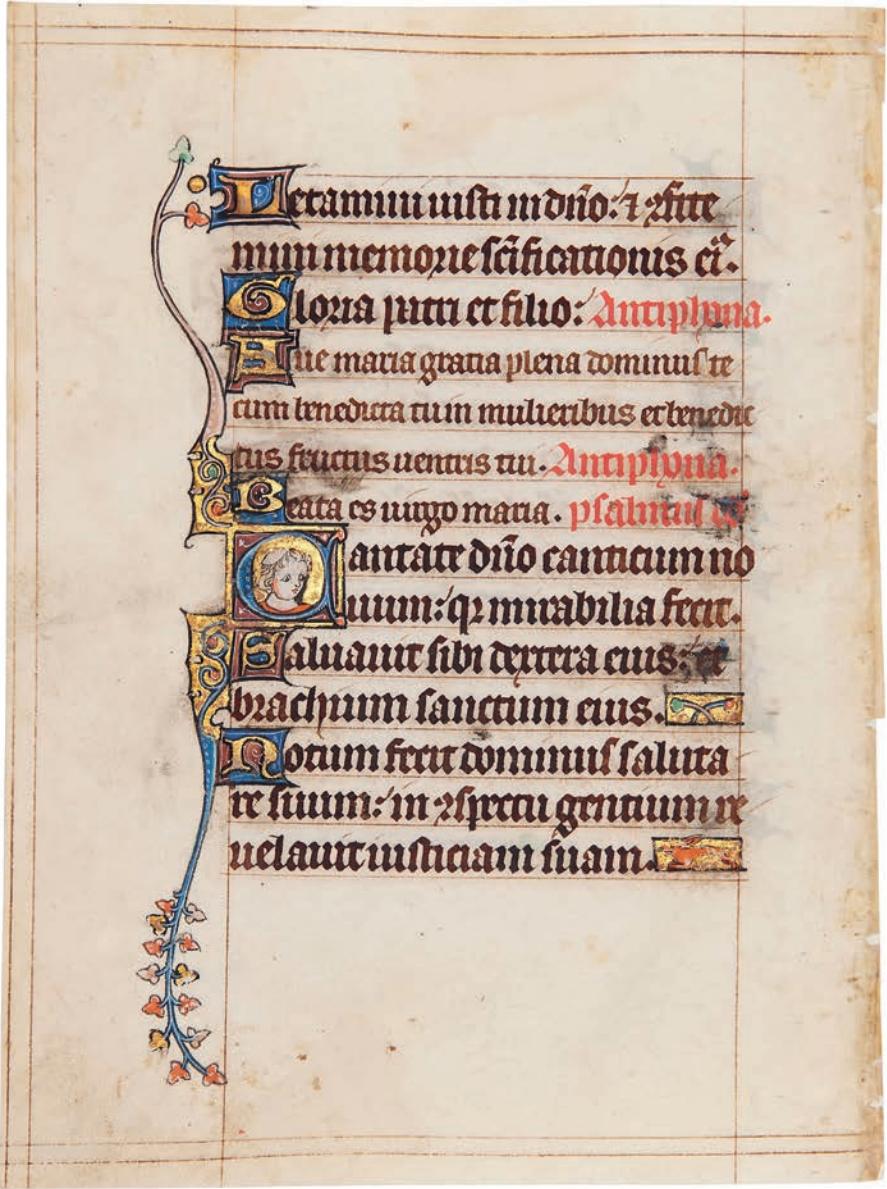 Letamini iusti in dño: ⁊ ꝯfite
mini memorie scĩficationis ei᷒.
Gloria patri et filio: Antiphona.
Aue maria gratia plena dominus te
cum benedicta tu in mulieribus et benedic
tus fructus uentris tui. Antiphona.
Beata es uirgo maria. psalmus
Cantate dño canticum no
uum: qꝛ mirabilia fecit.
Saluauit sibi dextera eius: et
brachium sanctum eius.
Notum fecit dominus saluta
re suum: in ꝯspectu gentium re
uelauit iusticiam suam.